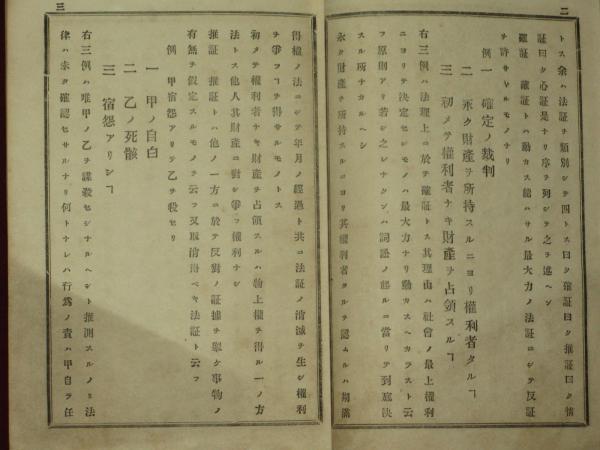 二
トス余ハ法証ヲ類別シテ四トス曰ク確証曰ク推証曰ク情
証曰ク心証是ナリ序ヲ列シテ之ヲ述ヘン
確証 確証トハ動カス能ハサル最大力ノ法証ニシテ反証
ヲ許サヽルモノナリ
例 一 確定ノ裁判
二 永ク財産ヲ所持スルニヨリ權利者タルヿ
三 初メテ權利者ナキ財産ヲ占領スルヿ
右三例ハ法理上ニ於テ確証トス其理由ハ社會ノ最上權利
ニヨリテ決定セシモノハ最大力ナリ動カスヘカラスト云
フ原則アリ若シ之レナクンハ詞訟ノ起ルニ當リテ到底決
スル所ナカルヘシ
永ク財産ヲ所持スルニヨリ其權利者タルヲ認ムルハ期滿
三
得權ノ法ニシテ年月ノ經過ト共ニ法証ノ消滅ヲ生シ權利
ヲ爭フヿヲ得サルモノトス
初メテ權利者ナキ財産ヲ占領スルハ物上權ヲ得ル一ノ方
法トス他人其財産ニ對シ爭フ權利ナシ
推証 推証トハ他ノ一方ニ於テ反對ノ証據ヲ擧ケ事物ノ
有無ヲ假定スルモノヲ云フ又取消得ベキ法証ト云フ
例 甲宿怨アリテ乙ヲ殺セリ
一 甲ノ自白
二 乙ノ死骸
三 宿怨アリシヿ
右三例ハ唯甲ノ乙ヲ謀殺セシナルヘシト推測スルノミ法
律ハ未タ確認セサルナリ何トナレハ行爲ノ責ハ甲自ラ任